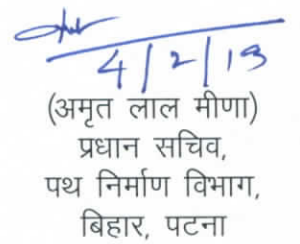 4/2/19
(अमृत लाल मीणा)
प्रधान सचिव,
पथ निर्माण विभाग,
बिहार, पटना